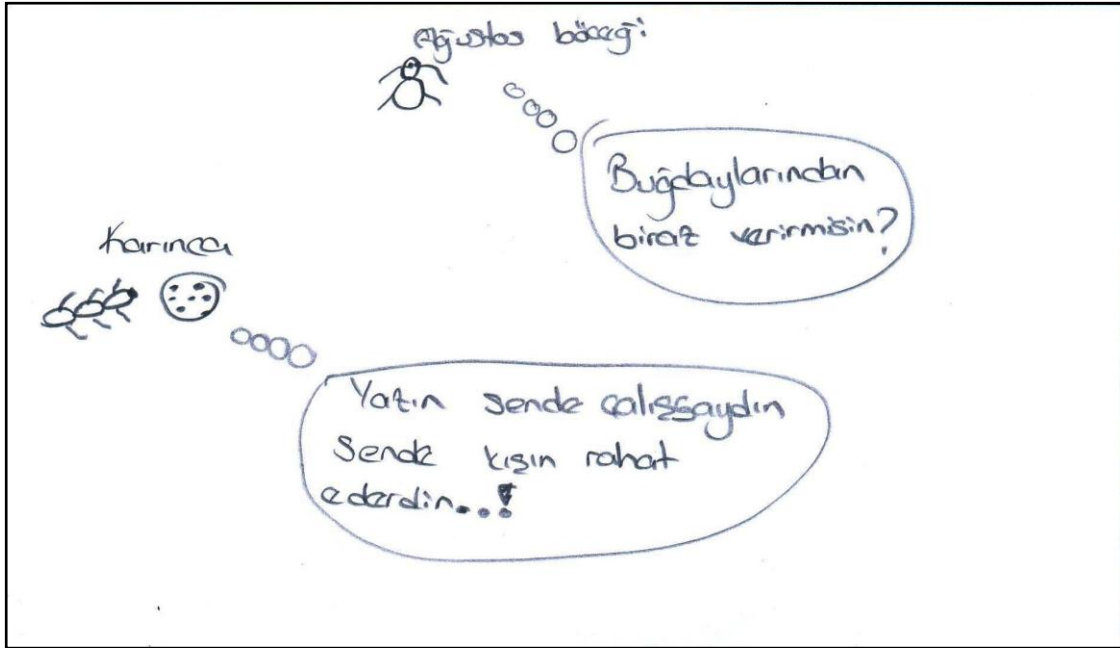 Ağustos böceği
Buğdaylarından
biraz verirmisin?
Karınca
Yazın sende çalışsaydın
Sende kışın rahat
ederdin...!